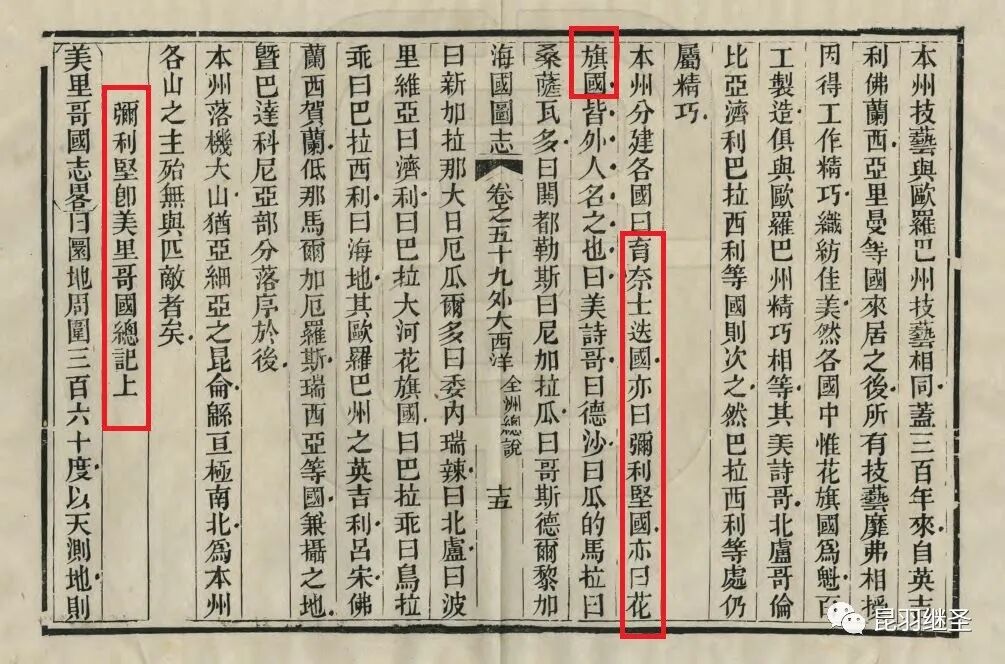 本州技藝與歐羅巴州技藝相同蓋三百年來自英吉
利佛蘭西亞里曼等國來居之後所有技藝靡弗相授
因得工作精巧織紡佳美然各國中惟花旗國為魁百
工製造俱與歐羅巴州精巧相等其美詩哥北盧哥倫
比亞濟利巴拉西利等國則次之然巴拉西利等處仍
屬精巧
本州分建各國曰育奈士迭國亦曰彌利堅國亦曰花
旗國皆外人名之也曰美詩哥曰德沙曰瓜的馬拉曰
桑薩瓦多曰閧都勒斯曰尼加拉瓜曰哥斯德爾黎加
海國圖志 卷之五十九外大西洋 全洲總說 十五
曰新加拉那大曰厄瓜爾多曰委內瑞辣曰北盧曰波
里維亞曰濟利曰巴拉大河花旗國曰巴拉乖曰烏拉
乖曰巴拉西利曰海地其歐羅巴州之英吉利呂宋佛
蘭西賀蘭低那馬爾加厄羅斯瑞西亞等國兼攝之地
曁巴達科尼亞部分落序於後
本州落機大山猶亞細亞之昆侖緜亘極南北為本州
各山之主殆無與匹敵者矣
彌利堅卽美里哥國總記上
美里哥國志畧曰圜地周圍三百六十度以天測地則
昆羽继圣